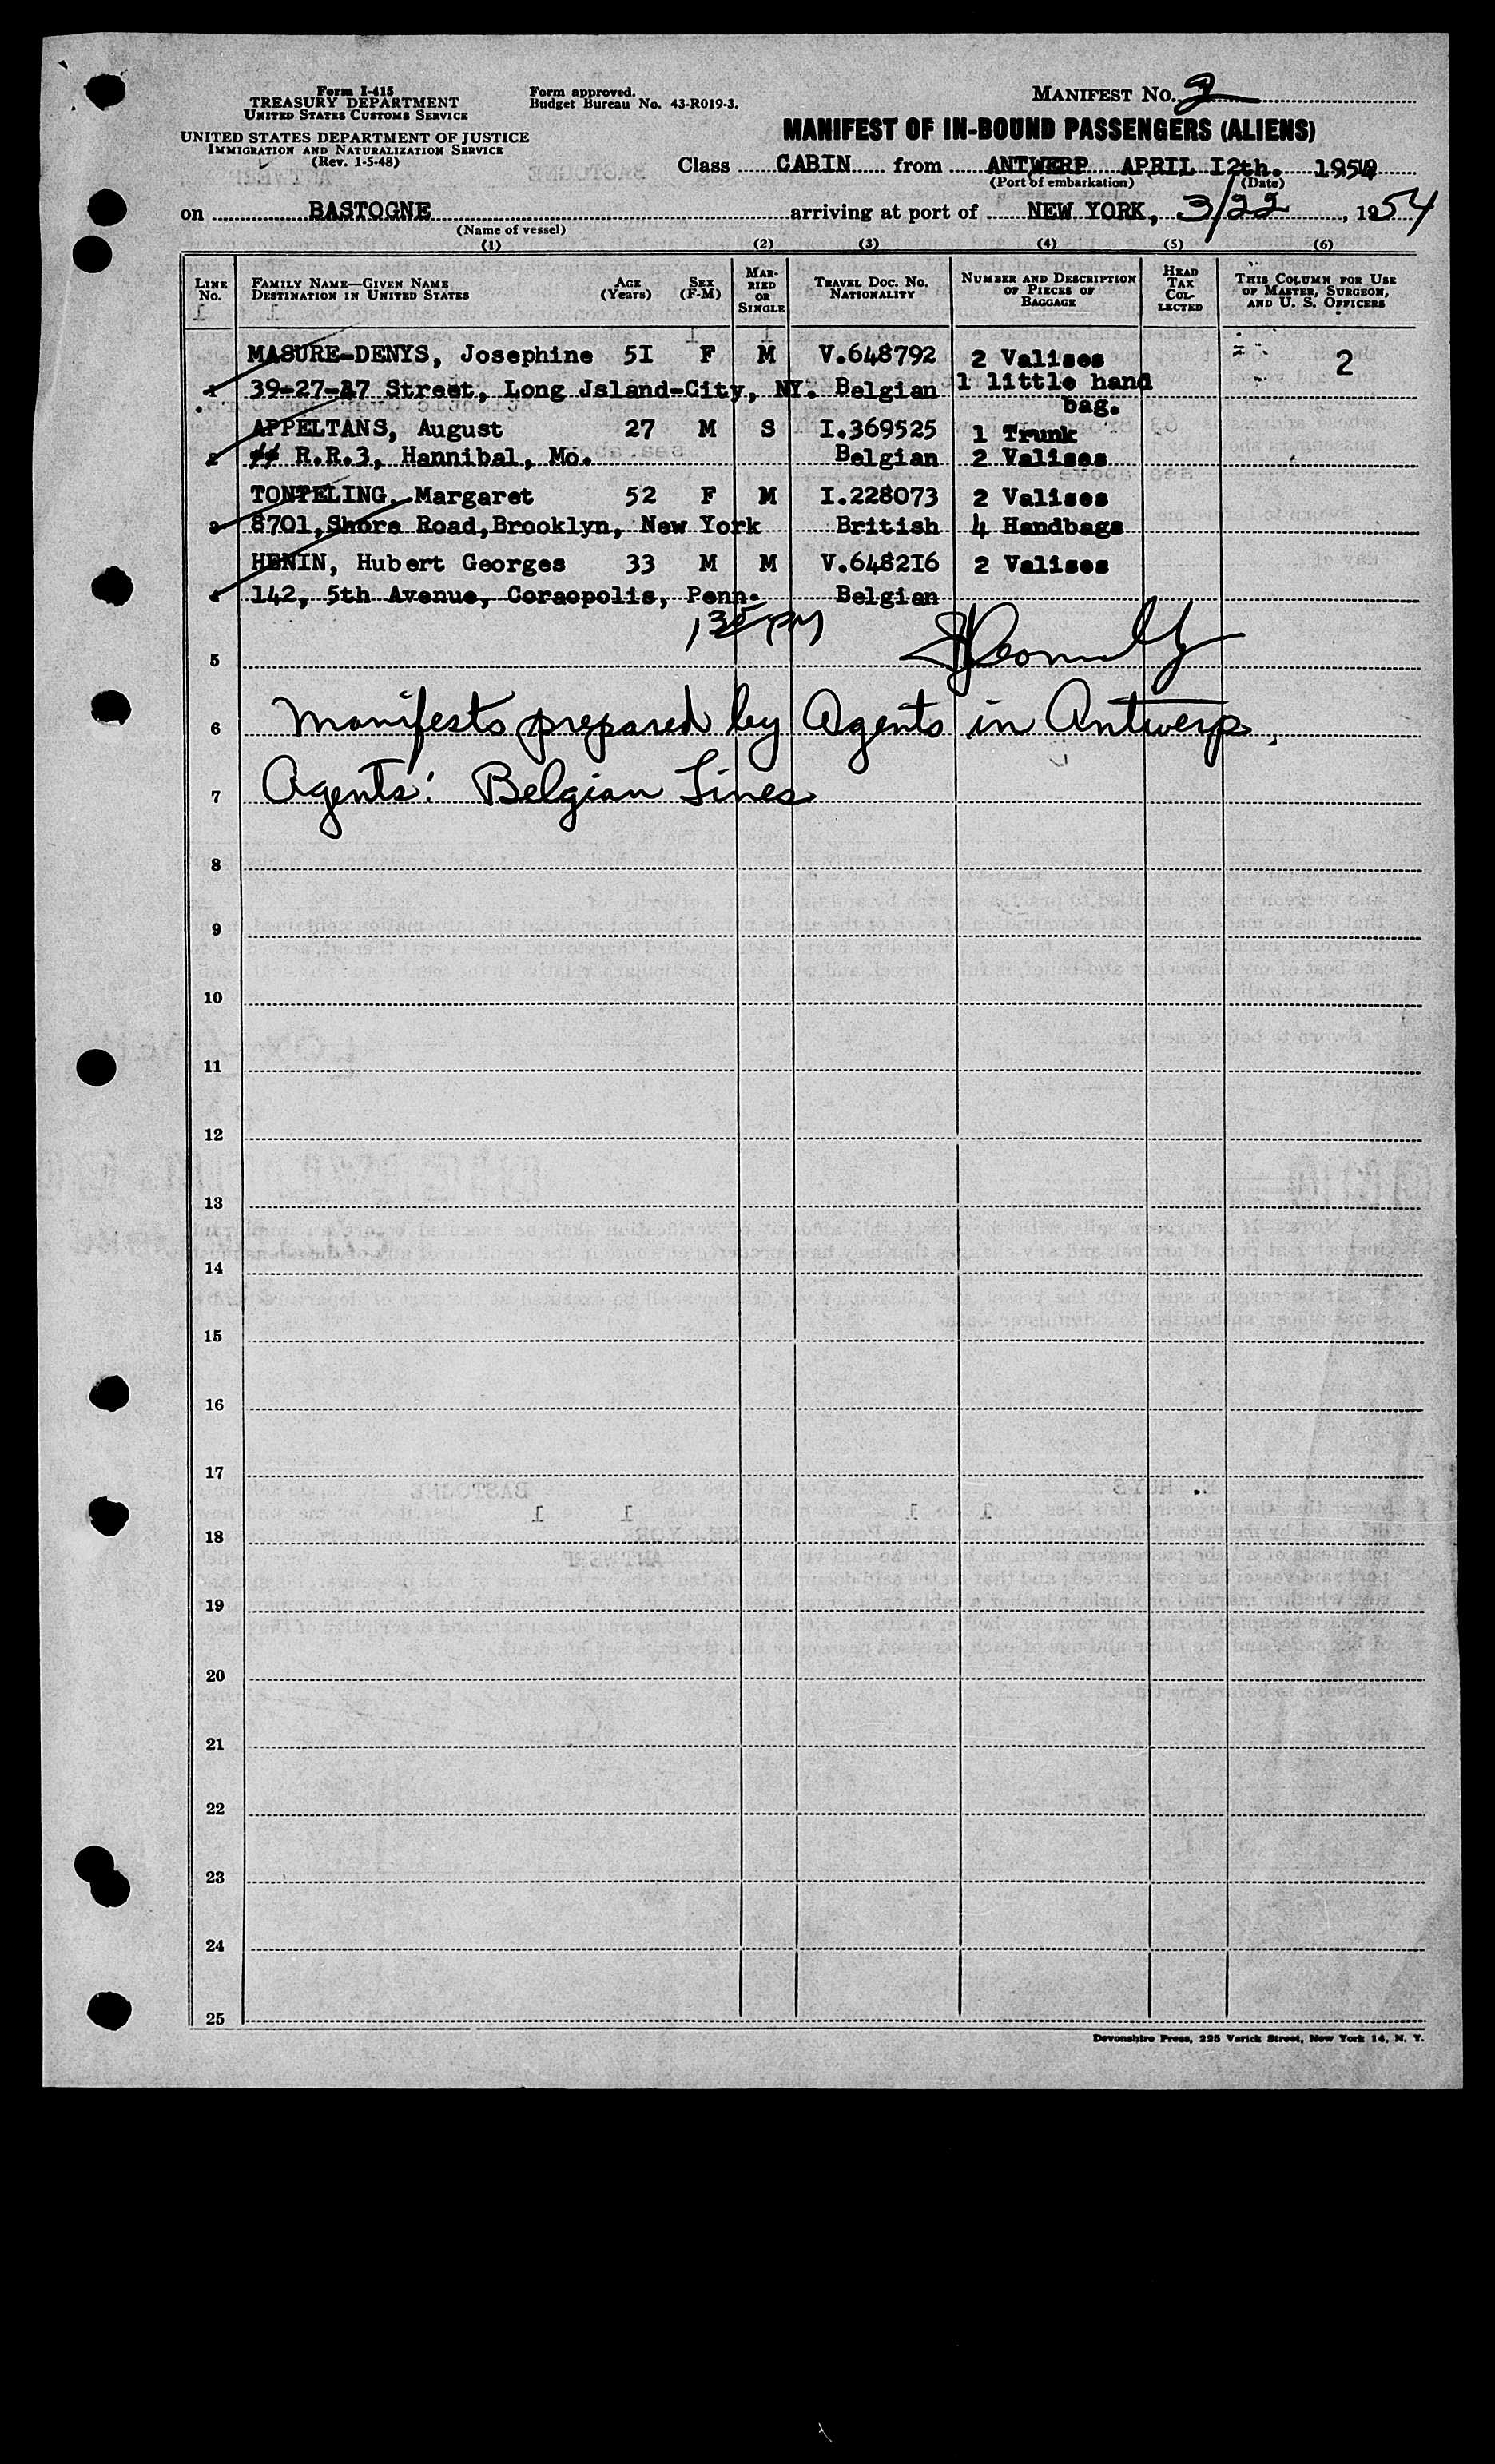 Form I-415
TREASURY DEPARTMENT
UNITED STATES CUSTOMS SERVICE
UNITED STATES DEPARTMENT OF JUSTICE
IMMIGRATION AND NATURALIZATION SERVICE
(Rev. 1-5-48)
Form approved.
Budget Bureau No. 43-R019-3.
MANIFEST No. 2
MANIFEST OF IN-BOUND PASSENGERS (ALIENS)
Class CABIN from ANTWERP APRIL I2th. 1954
(Port of embarkation) (Date)
on BASTOGNE arriving at port of NEW YORK, 3/22, 1954
(Name of vessel)
(1) (2) (3) (4) (5) (6)
LINE No. FAMILY NAME—GIVEN NAME DESTINATION IN UNITED STATES AGE (Years) SEX (F-M) MARRIED OR SINGLE TRAVEL DOC. NO. NATIONALITY NUMBER AND DESCRIPTION OF PIECES OF BAGGAGE HEAD TAX COLLECTED THIS COLUMN FOR USE OF MASTER, SURGEON, AND U. S. OFFICERS
MASURE-DENYS, Josephine 5I F M V.648792 2 Valises 2
1 39-27-27 Street, Long Jsland-City, NY. Belgian 1 little hand
bag.
APPELTANS, August 27 M S I.369525 1 Trunk
2 R.R.3, Hannibal, Mo. Belgian 2 Valises
TONTELING, Margaret 52 F M I.228073 2 Valises
3 8701,Shore Road,Brooklyn, New York British 4 Handbags
HENIN, Hubert Georges 33 M M V.6482I6 2 Valises
4 142, 5th Avenue, Coraopolis, Penn. Belgian
135 PM
5
6 Manifests prepared by Agents in Antwerp.
7 Agents: Belgian Lines
8
9
10
11
12
13
14
15
16
17
18
19
20
21
22
23
24
25
Devonshire Press, 225 Varick Street, New York 14, N. Y.